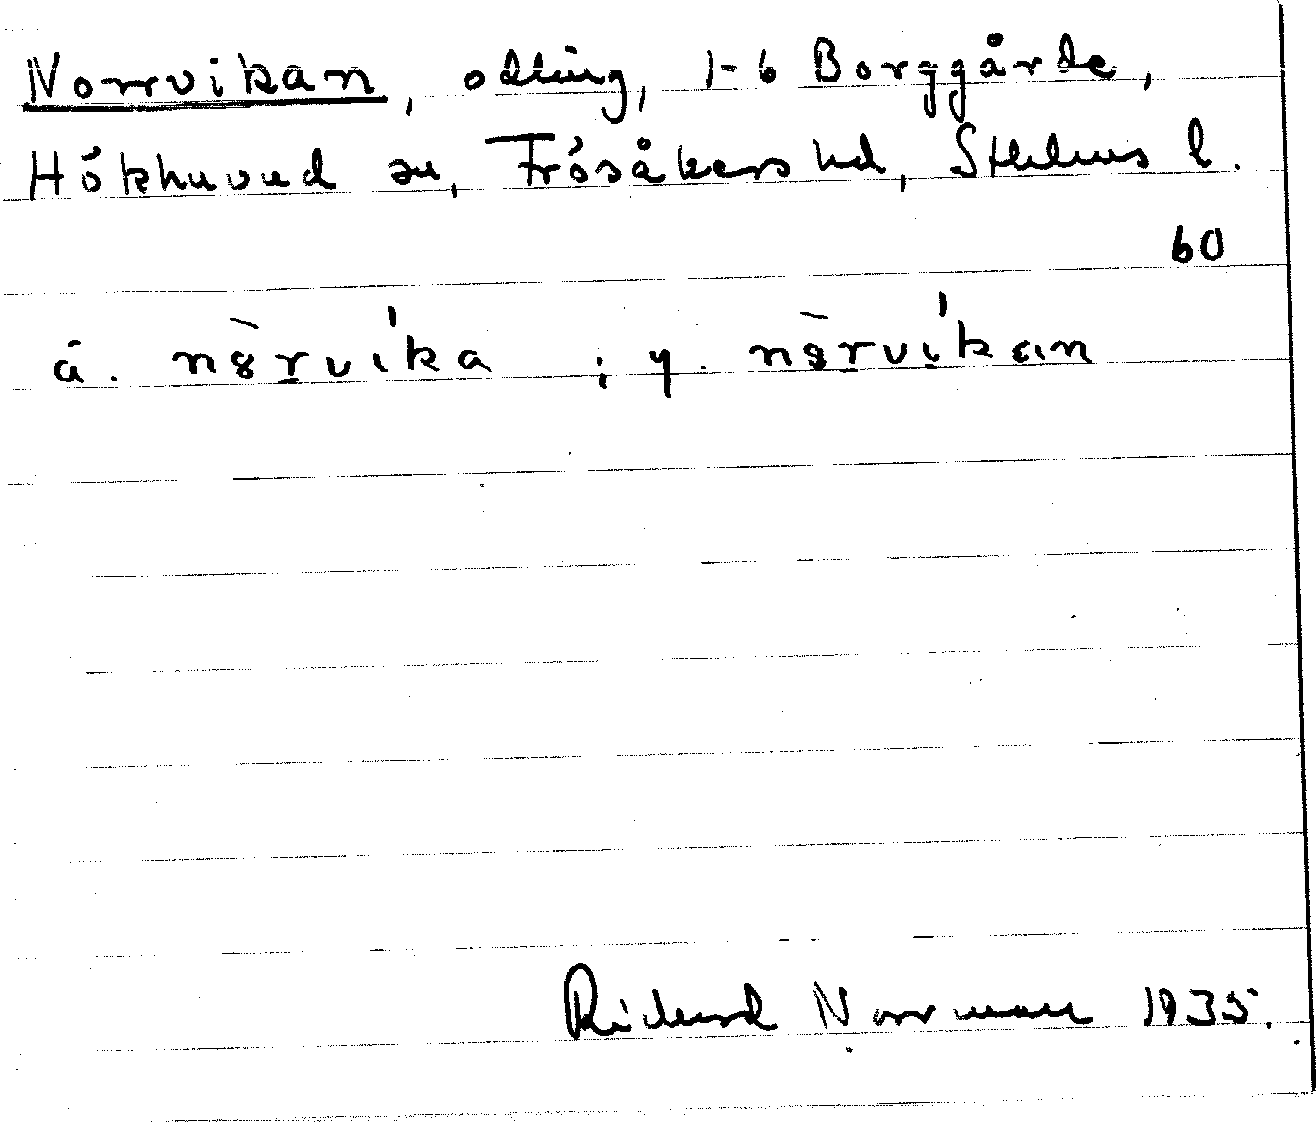 Norrvikan, odling, 1-6 Borggårde,
Hökhuvud sn, Frösåkers hd, Sthlms l.
60
ä. nȣ̀rvíka ; y. nȣ̀rvíkan
Richard Norrman 1935.